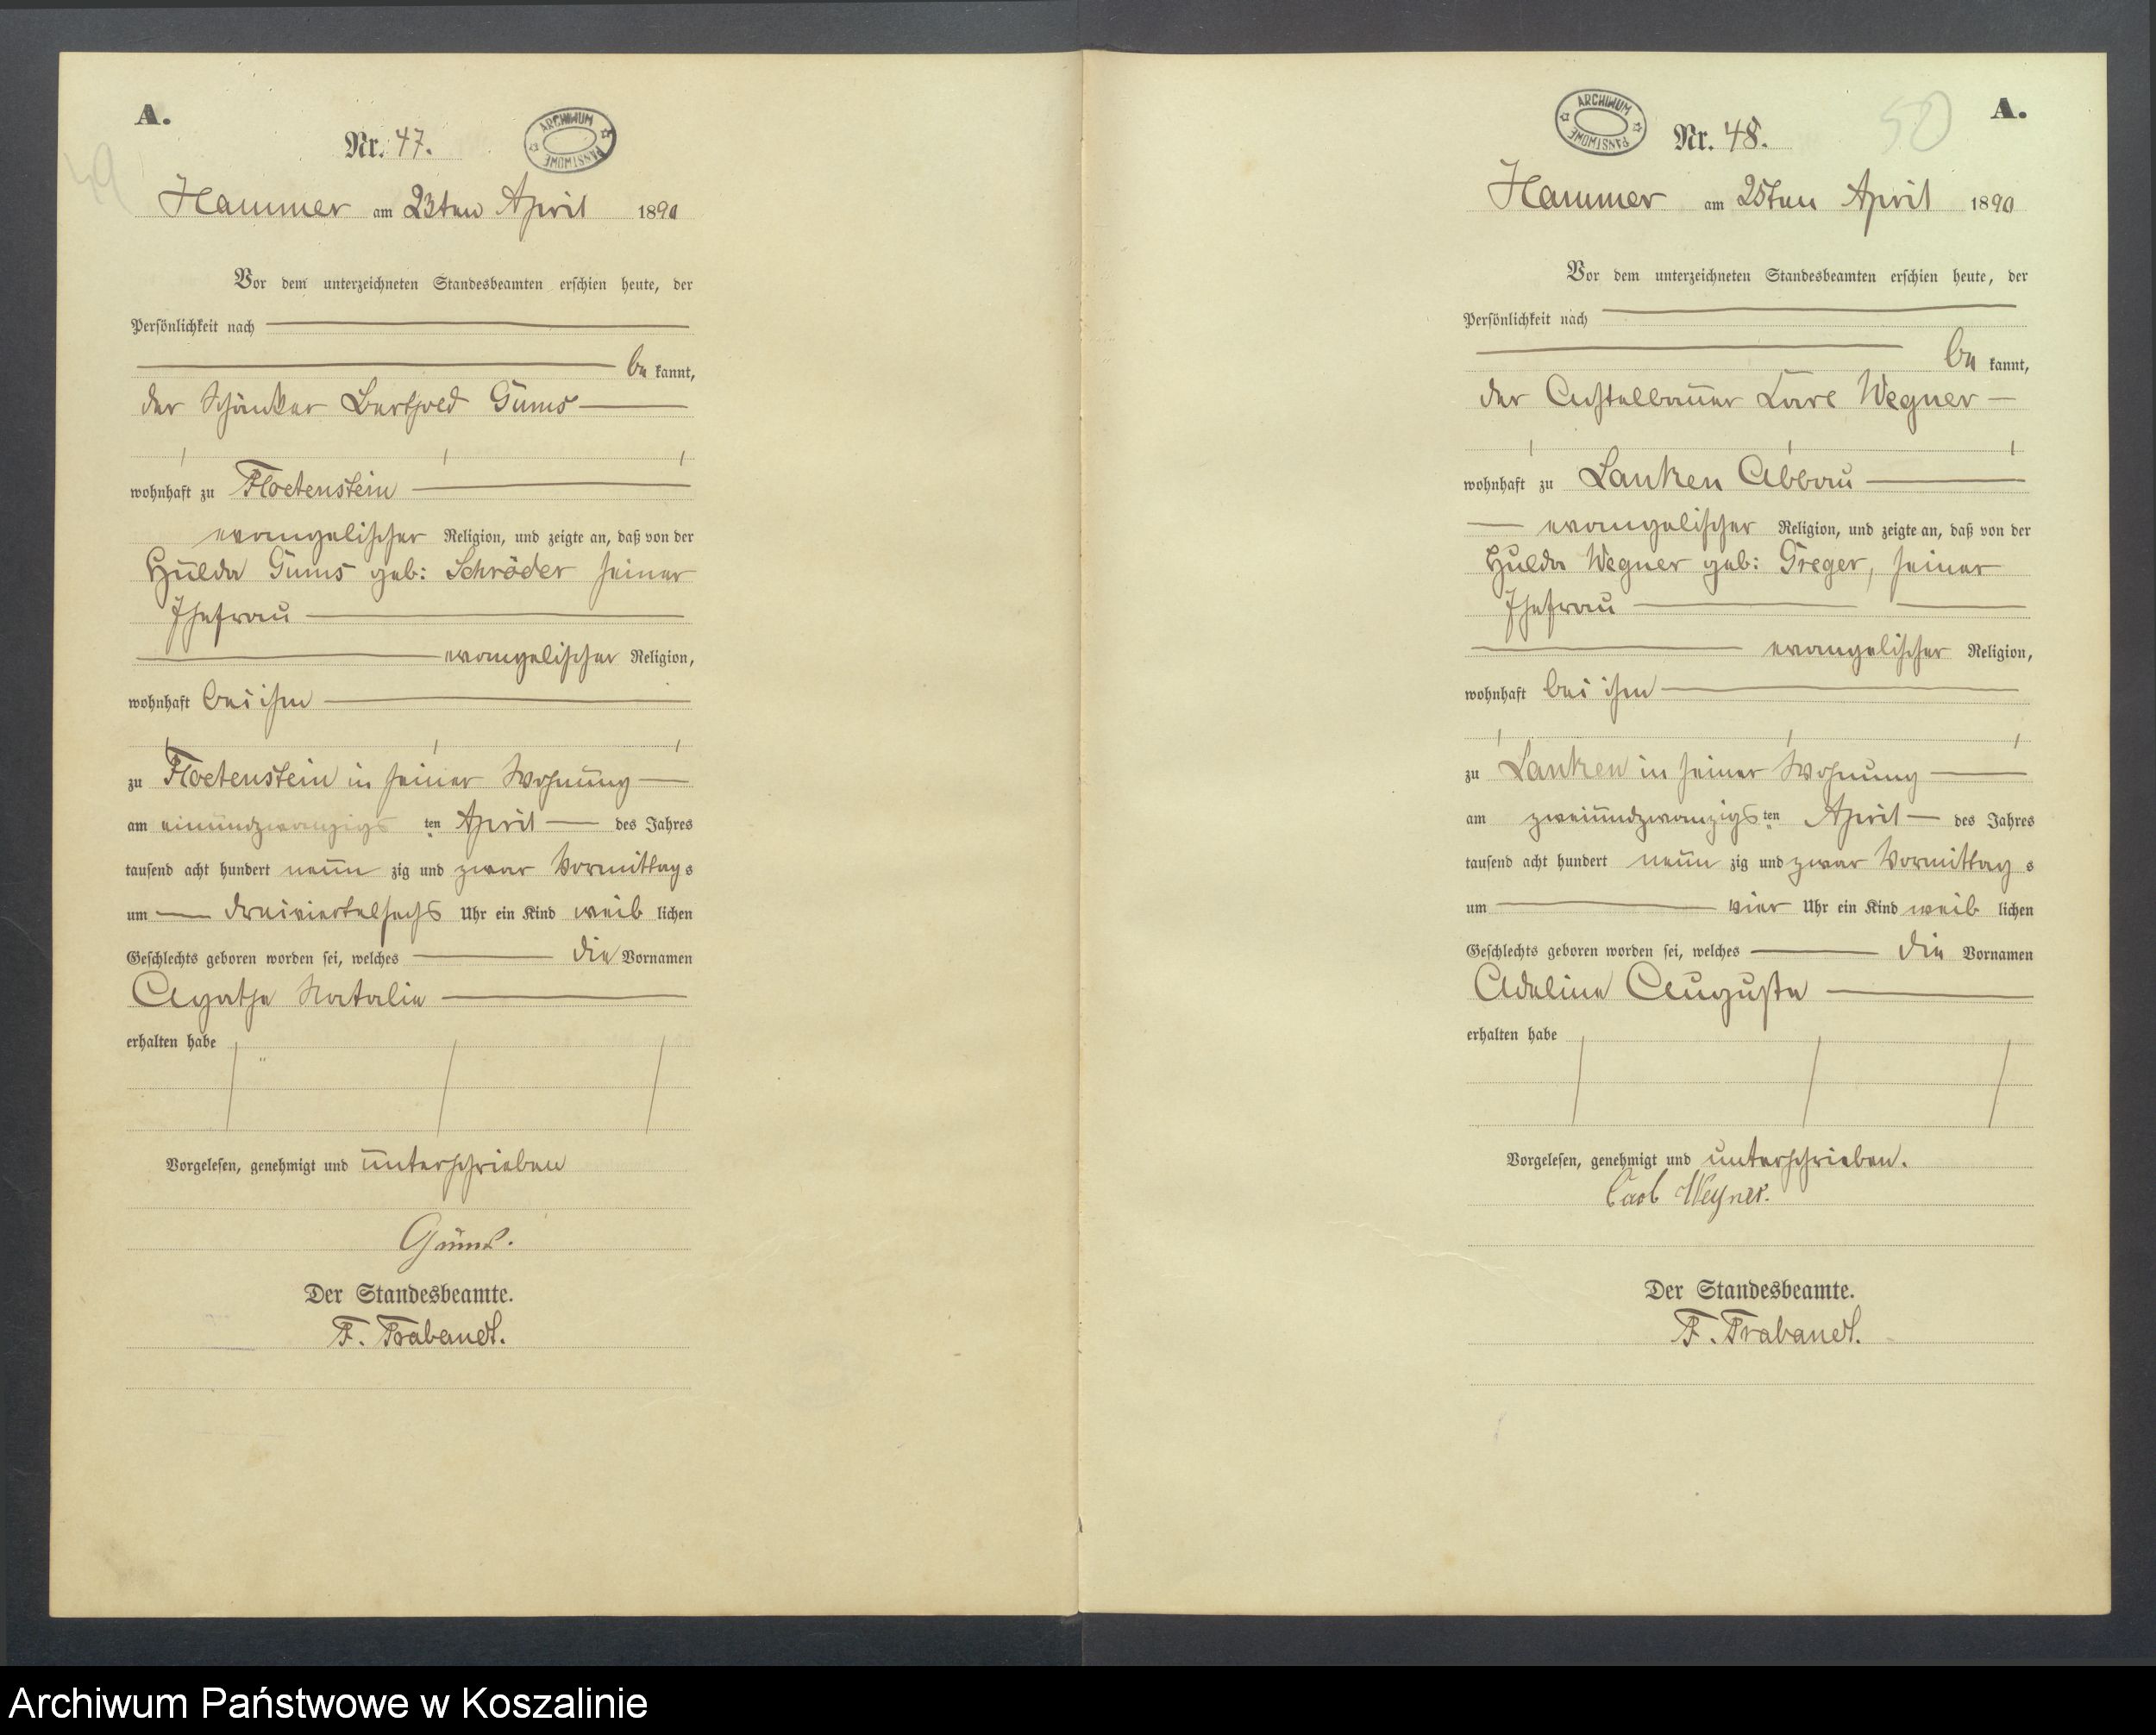 A.
Nr. 47.
ARCHIWUM PAŃSTWOWE
49
Hammer am 23ten April 1890
Vor dem unterzeichneten Standesbeamten erschien heute, der
Persönlichkeit nach
be kannt,
der Schänker Berthold Gums
wohnhaft zu Floetenstein
evangelischer Religion, und zeigte an, daß von der
Hulda Gums geb: Schröder seiner
Ehefrau
evangelischer Religion,
wohnhaft bei ihm
zu Floetenstein in seiner Wohnung
am einundzwanzigs ten April des Jahres
tausend acht hundert neun zig und zwar Vormittag s
um dreiviertelsechs Uhr ein Kind weib lichen
Geschlechts geboren worden sei, welches die Vornamen
Agathe Natalie
erhalten habe
Vorgelesen, genehmigt und unterschrieben
Gums.
Der Standesbeamte.
F. Trabandt.
A.
ARCHIWUM PAŃSTWOWE
Nr. 48.
50
Hammer am 25ten April 1890
Vor dem unterzeichneten Standesbeamten erschien heute, der
Persönlichkeit nach
be kannt,
der Carl Wegner
wohnhaft zu Lanken Abbau
evangelischer Religion, und zeigte an, daß von der
Hulda Wegner geb: Greger, seiner
Ehefrau
evangelischer Religion,
wohnhaft bei ihm
zu Lanken in seiner Wohnung
am zweiundzwanzigs ten April des Jahres
tausend acht hundert neun zig und zwar Vormittag s
um vier Uhr ein Kind weib lichen
Geschlechts geboren worden sei, welches die Vornamen
Adeline Auguste
erhalten habe
Vorgelesen, genehmigt und unterschrieben.
Carl Wegner.
Der Standesbeamte.
F. Trabandt.
Archiwum Państwowe w Koszalinie